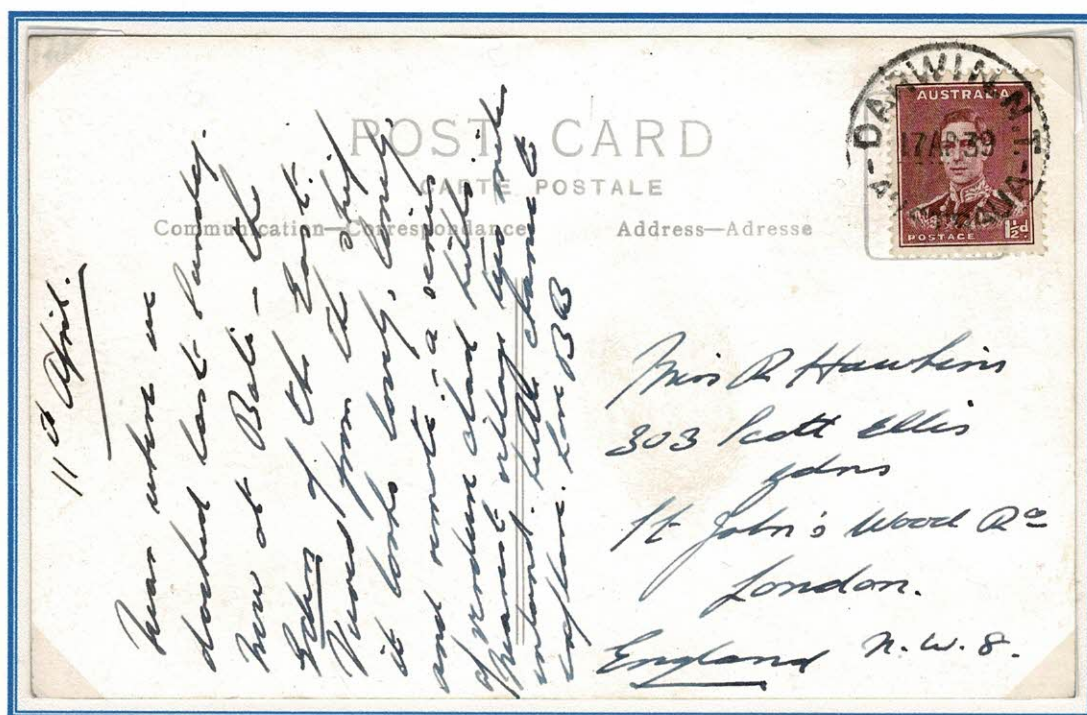 POST CARD
CARTE POSTALE
Communication—Correspondance
Address—Adresse
AUSTRALIA
POSTAGE
1½d
DARWIN N.T.
17 AP 39
11th April.
Near where we
docked last Sunday.
Now at Bali – the
Eden of the East.
Viewed from the ship
it looks lovely, lonely,
and remote – a series
of verdure clad hills
nearest village two miles
inland. little chance to
explore. Love BB
Miss R Hawkins
303 Scott Ellis
gdns
St John's Wood Rd
London.
England N.W.8.